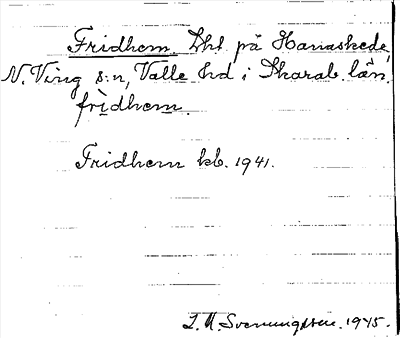 Fridhem. Lht på Hanaskede,
N. Ving s:n, Valle hd i Skarab. län.
fri̱dhem.
Fridhem kb. 1941.
L. M. Svenungsson. 1945.